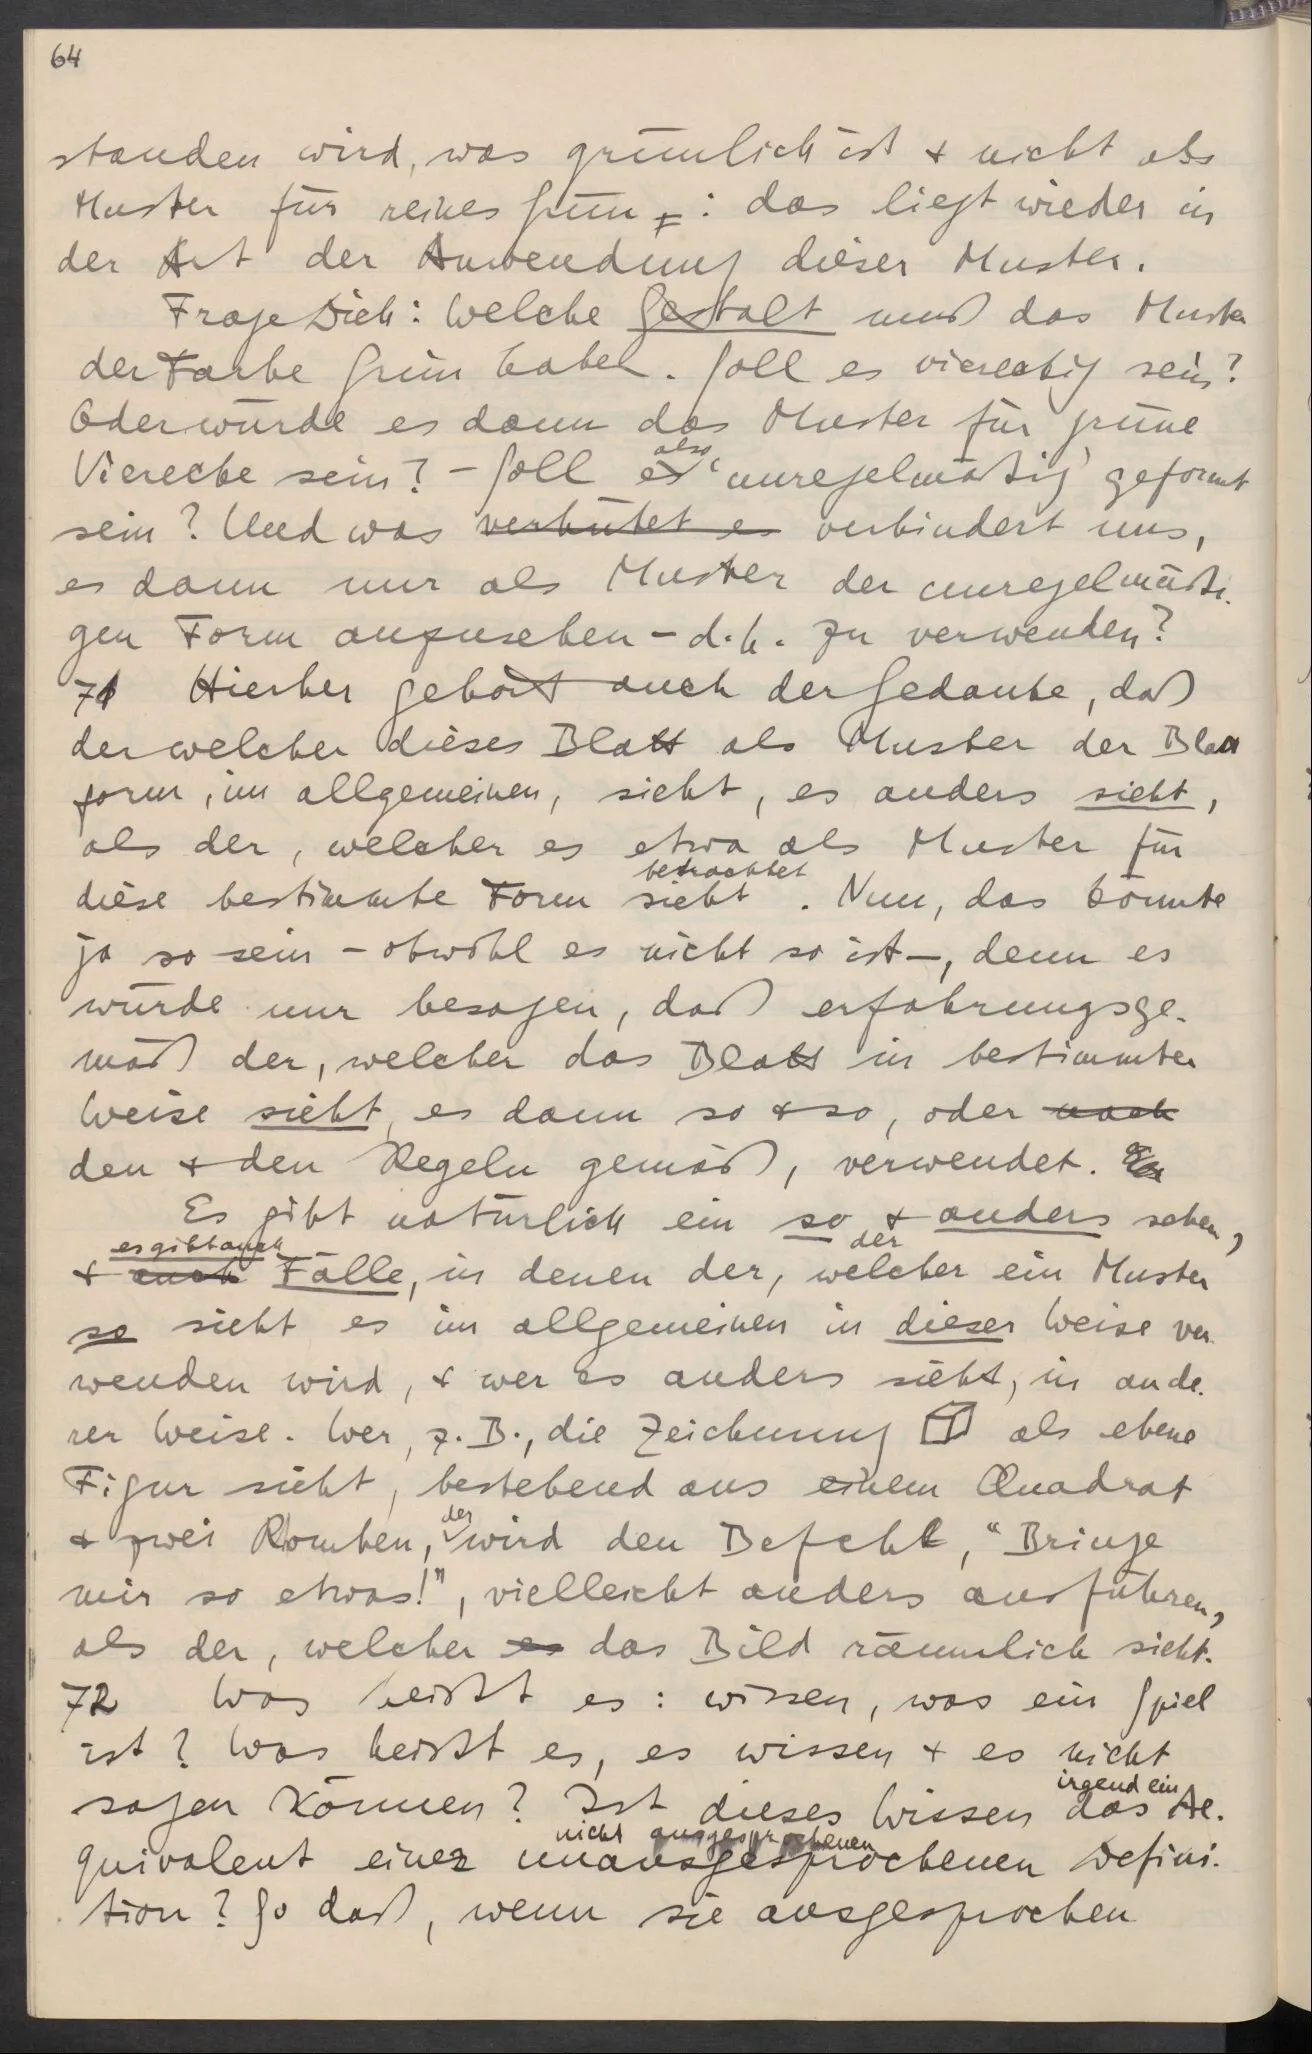 64
standen wird, was grünlich ist & nicht als
Muster für reines Grün : das liegt wieder in
der Art der Anwendung dieser Muster.
Frage Dich: Welche Gestalt muß das Muster
der Farbe Grün haben. Soll es viereckig sein?
Oder würde es dann das Muster für grüne
Vierecke sein? – Soll es also 'unregelmäßig' geformt
sein? Und was verhütet es verhindert uns,
es dann nur als Muster der unregelmäßi-
gen Form anzusehen – d.h. zu verwenden?
71 Hierher gehört auch der Gedanke, daß
der welcher dieses Blatt als Muster der Blatt
form, im allgemeinen, sieht, es anders sieht,
als der, welcher es etwa als Muster für
betrachtet
diese bestimmte Form sieht. Nun, das könnte
ja so sein – obwohl es nicht so ist –, denn es
würde nur besagen, daß erfahrungsge-
mäß der, welcher das Blatt in bestimmter
Weise sieht, es dann so & so, oder nach
den & den Regeln gemäß, verwendet.
Es gibt natürlich ein so & anders sehen,
es gibt auch der
& auch Fälle, in denen der, welcher ein Muster
so sieht es im allgemeinen in dieser Weise ver
wenden wird, & wer es anders sieht, in ande-
rer Weise. Wer, z.B., die Zeichnung als ebene
Figur sieht, bestehend aus einem Quadrat
& zwei Romben, der wird den Befehl, "Bringe
mir so etwas!", vielleicht anders ausführen,
als der, welcher es das Bild räumlich sieht.
72 Was heißt es: wissen, was ein Spiel
ist? Was heißt es, es wissen & es nicht
irgend ein
sagen können? Ist dieses Wissen das Ae-
nicht ausgesprochenen
quivalent einer unausgesprochenen Defini-
tion? So daß, wenn sie ausgesprochen